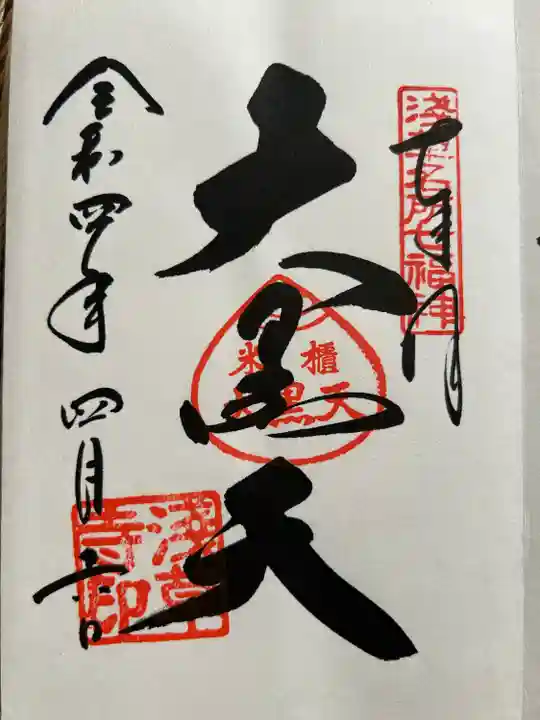 奉拝
淺草名所七福神
大黒天
米櫃
大黒天
令和四年四月
淺草寺印